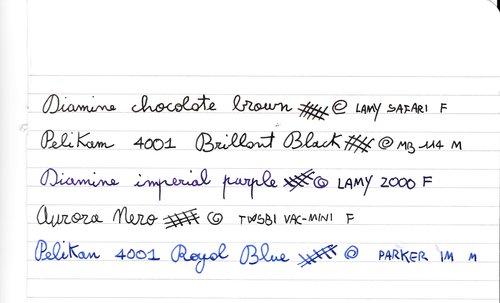 Diamine chocolate brown @ LAMY SAFARI F
Pelikan 4001 Brillant Black @ MB 144 M
Diamine imperial purple @ LAMY 2000 F
Aurora Nero @ TWSBI VAC-MINI F
Pelikan 4001 Royal Blue @ PARKER IM M